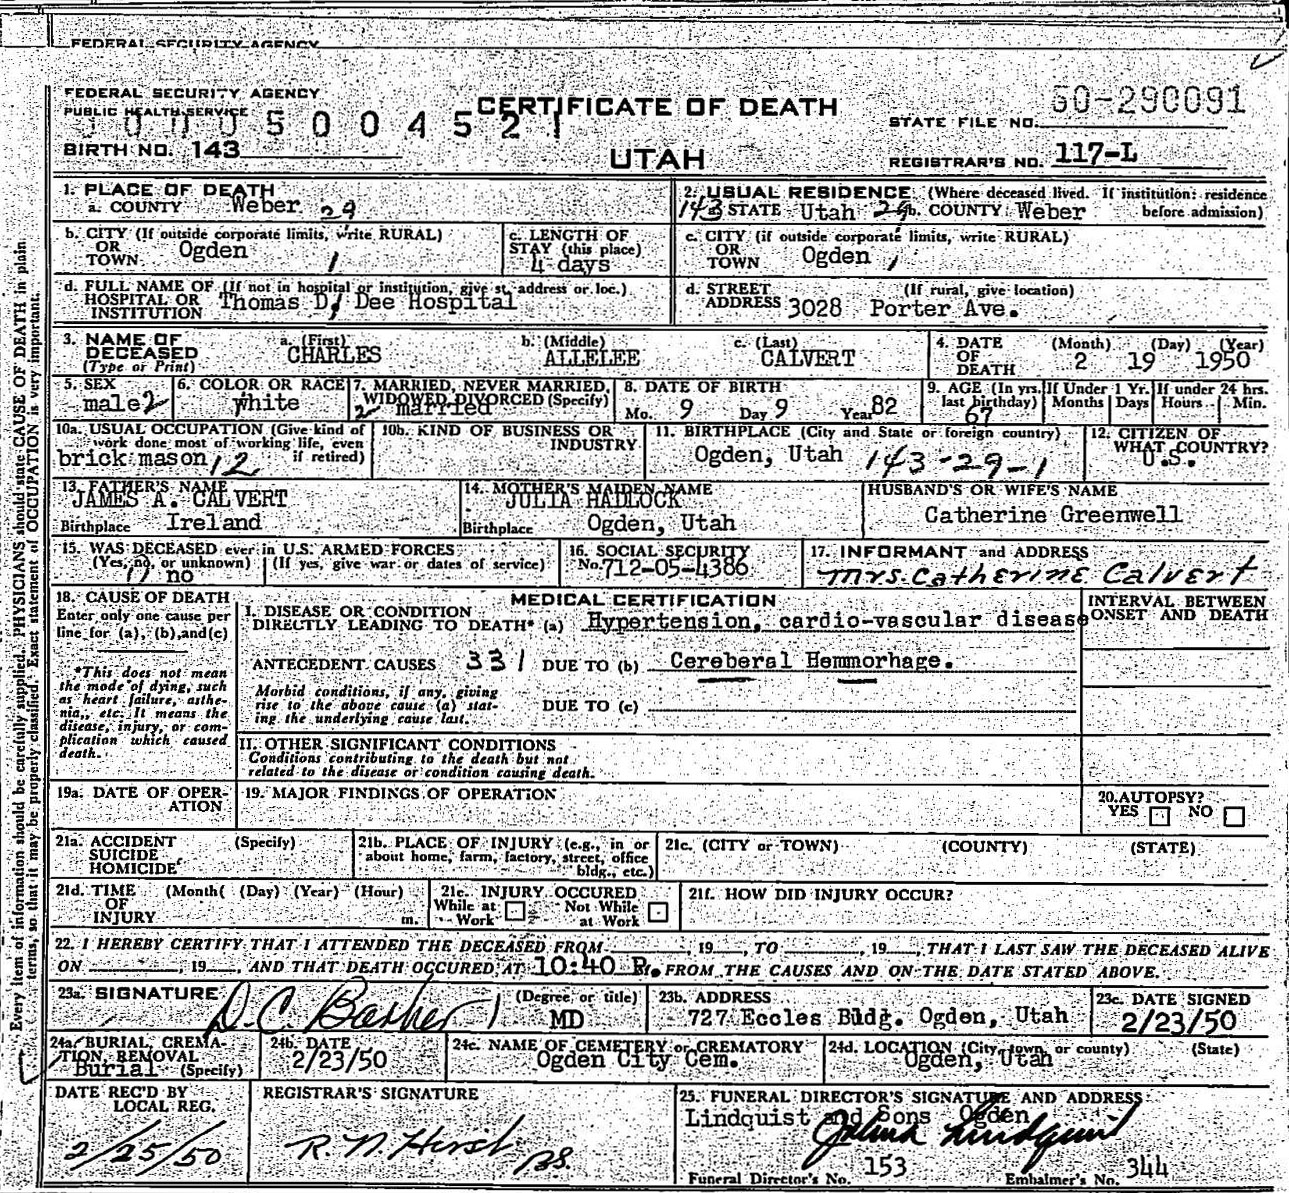 FEDERAL SECURITY AGENCY
FEDERAL SECURITY AGENCY
PUBLIC HEALTH SERVICE
CERTIFICATE OF DEATH
50-290091
STATE FILE NO.
5 0 0 4 5 2 1
BIRTH NO. 143
UTAH
REGISTRAR'S NO. 117-L
1. PLACE OF DEATH
a. COUNTY Weber 29
2. USUAL RESIDENCE (Where deceased lived. If institution: residence before admission)
143 STATE Utah 29 b. COUNTY Weber
b. CITY (If outside corporate limits, write RURAL)
OR TOWN Ogden 1
c. LENGTH OF STAY (this place)
4 days
c. CITY (if outside corporate limits, write RURAL)
OR TOWN Ogden 1
d. FULL NAME OF (If not in hospital or institution, give st. address or loc.)
HOSPITAL OR INSTITUTION Thomas D. Dee Hospital
d. STREET ADDRESS (If rural, give location)
3028 Porter Ave.
3. NAME OF DECEASED (Type or Print)
a. (First) CHARLES
b. (Middle) ALLELEE
c. (Last) CALVERT
4. DATE OF DEATH
(Month) (Day) (Year)
2 19 1950
5. SEX
male 2
6. COLOR OR RACE
white
7. MARRIED, NEVER MARRIED, WIDOWED, DIVORCED (Specify)
2 married
8. DATE OF BIRTH
Mo. 9 Day 9 Year 82
9. AGE (In yrs. last birthday)
67
If Under 1 Yr.
Months Days
If under 24 hrs.
Hours Min.
10a. USUAL OCCUPATION (Give kind of work done most of working life, even if retired)
brick mason 12
10b. KIND OF BUSINESS OR INDUSTRY
11. BIRTHPLACE (City and State or foreign country)
Ogden, Utah 143-29-1
12. CITIZEN OF WHAT COUNTRY?
U.S.
13. FATHER'S NAME
JAMES A. CALVERT
Birthplace Ireland
14. MOTHER'S MAIDEN NAME
JULIA HADLOCK
Birthplace Ogden, Utah
HUSBAND'S OR WIFE'S NAME
Catherine Greenwell
15. WAS DECEASED ever in U.S. ARMED FORCES
(Yes, no, or unknown) (If yes, give war or dates of service)
no
16. SOCIAL SECURITY
No. 712-05-4386
17. INFORMANT and ADDRESS
Mrs. Catherine Calvert
18. CAUSE OF DEATH
Enter only one cause per line for (a), (b), and (c)
*This does not mean the mode of dying, such as heart failure, asthenia, etc. It means the disease, injury, or complication which caused death.
MEDICAL CERTIFICATION
INTERVAL BETWEEN ONSET AND DEATH
I. DISEASE OR CONDITION DIRECTLY LEADING TO DEATH* (a) Hypertension, cardio-vascular disease
ANTECEDENT CAUSES 331 DUE TO (b) Cereberal Hemmorhage.
Morbid conditions, if any, giving rise to the above cause (a) stating the underlying cause last.
DUE TO (c)
II. OTHER SIGNIFICANT CONDITIONS
Conditions contributing to the death but not related to the disease or condition causing death.
19a. DATE OF OPERATION
19. MAJOR FINDINGS OF OPERATION
20. AUTOPSY?
YES NO
21a. ACCIDENT SUICIDE HOMICIDE (Specify)
21b. PLACE OF INJURY (e.g., in or about home, farm, factory, street, office bldg., etc.)
21c. (CITY or TOWN) (COUNTY) (STATE)
21d. TIME OF INJURY (Month( (Day) (Year) (Hour) m.
21e. INJURY OCCURED
While at Work Not While at Work
21f. HOW DID INJURY OCCUR?
22. I HEREBY CERTIFY THAT I ATTENDED THE DECEASED FROM , 19 TO , 19 , THAT I LAST SAW THE DECEASED ALIVE
ON , 19 , AND THAT DEATH OCCURED AT 10:40 P.M. FROM THE CAUSES AND ON THE DATE STATED ABOVE.
23a. SIGNATURE
D. C. Barker
(Degree or title)
MD
23b. ADDRESS
727 Eccles Bldg. Ogden, Utah
23c. DATE SIGNED
2/23/50
24a BURIAL, CREMATION, REMOVAL (Specify)
Burial
24b. DATE
2/23/50
24c. NAME OF CEMETERY or CREMATORY
Ogden City Cem.
24d. LOCATION (City, town, or county) (State)
Ogden, Utah
DATE REC'D BY LOCAL REG.
2/25/50
REGISTRAR'S SIGNATURE
R. N. Hirst
25. FUNERAL DIRECTOR'S SIGNATURE AND ADDRESS
Lindquist and Sons Ogden
Lindquist
Funeral Director's No. 153
Embalmer's No. 344
Every item of information should be carefully supplied. PHYSICIANS should state CAUSE OF DEATH in plain
terms, so that it may be properly classified. Exact statement of OCCUPATION is very important.